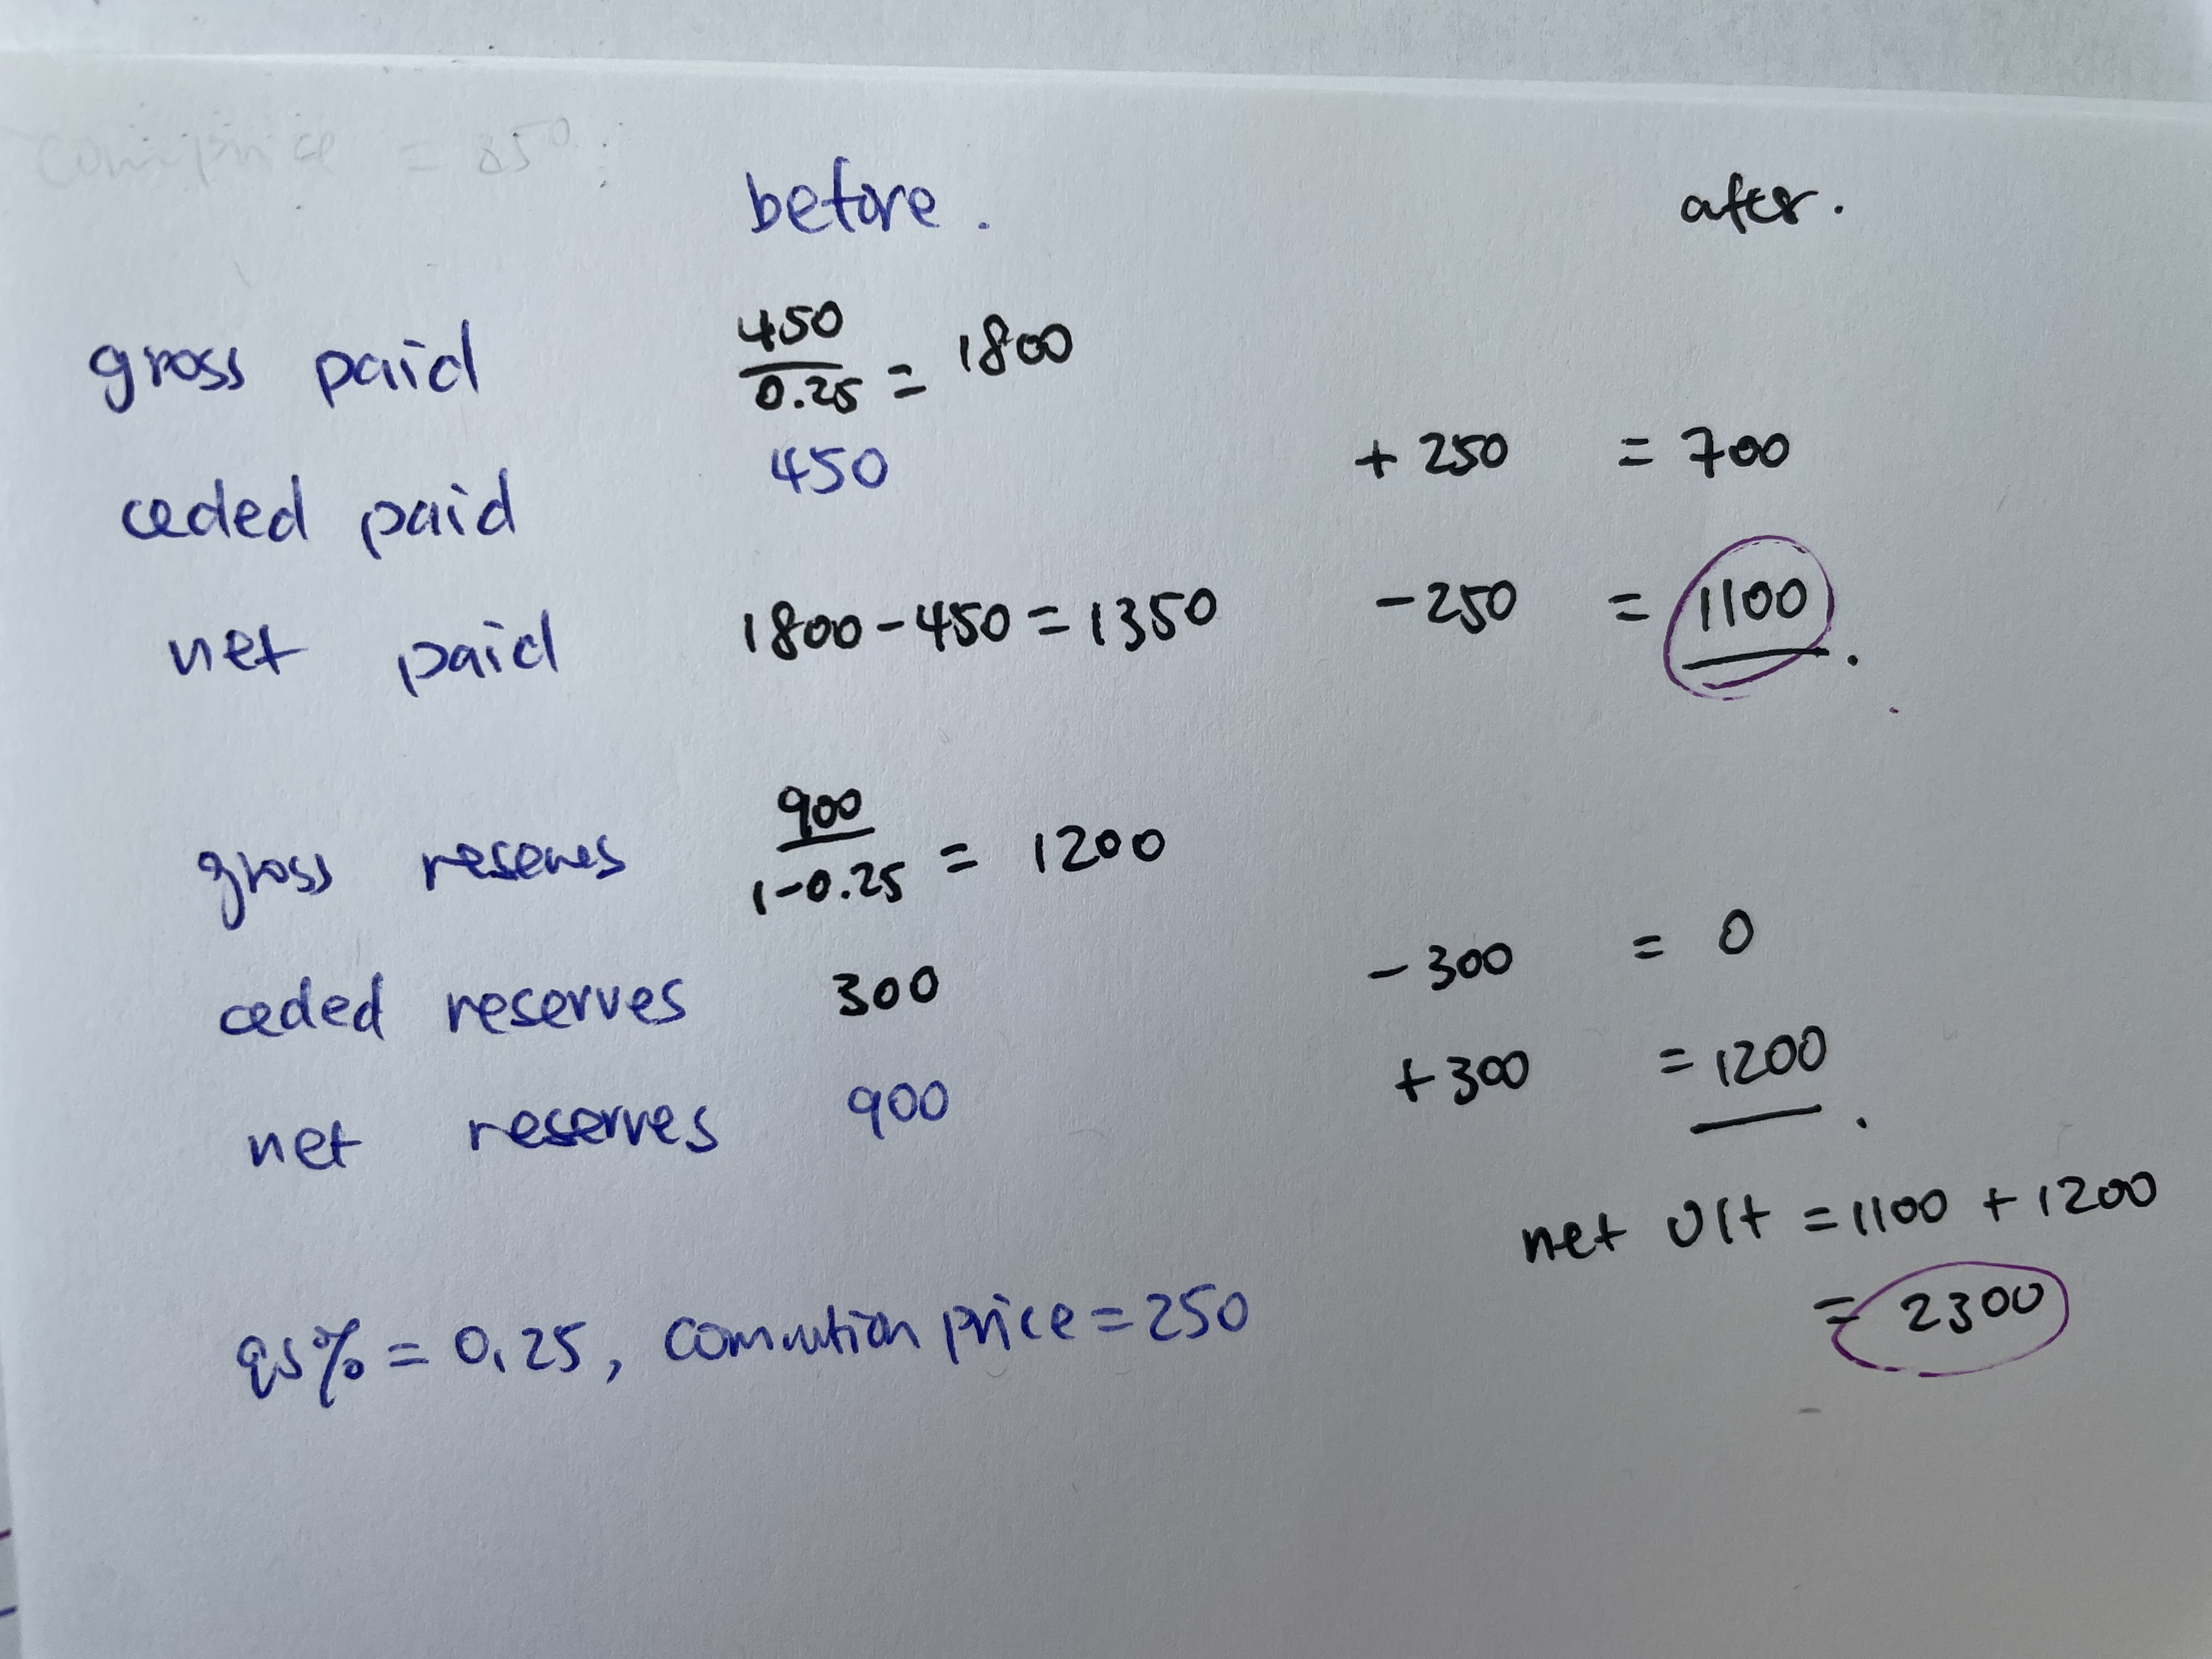 before. after.
gross paid 450/0.25 = 1800
ceded paid 450 + 250 = 700
net paid 1800 - 450 = 1350 - 250 = 1100.
gross reserves 900/1-0.25 = 1200
ceded reserves 300 - 300 = 0
net reserves 900 + 300 = 1200.
net Ult = 1100 + 1200
= 2300
qs% = 0.25, commution price = 250